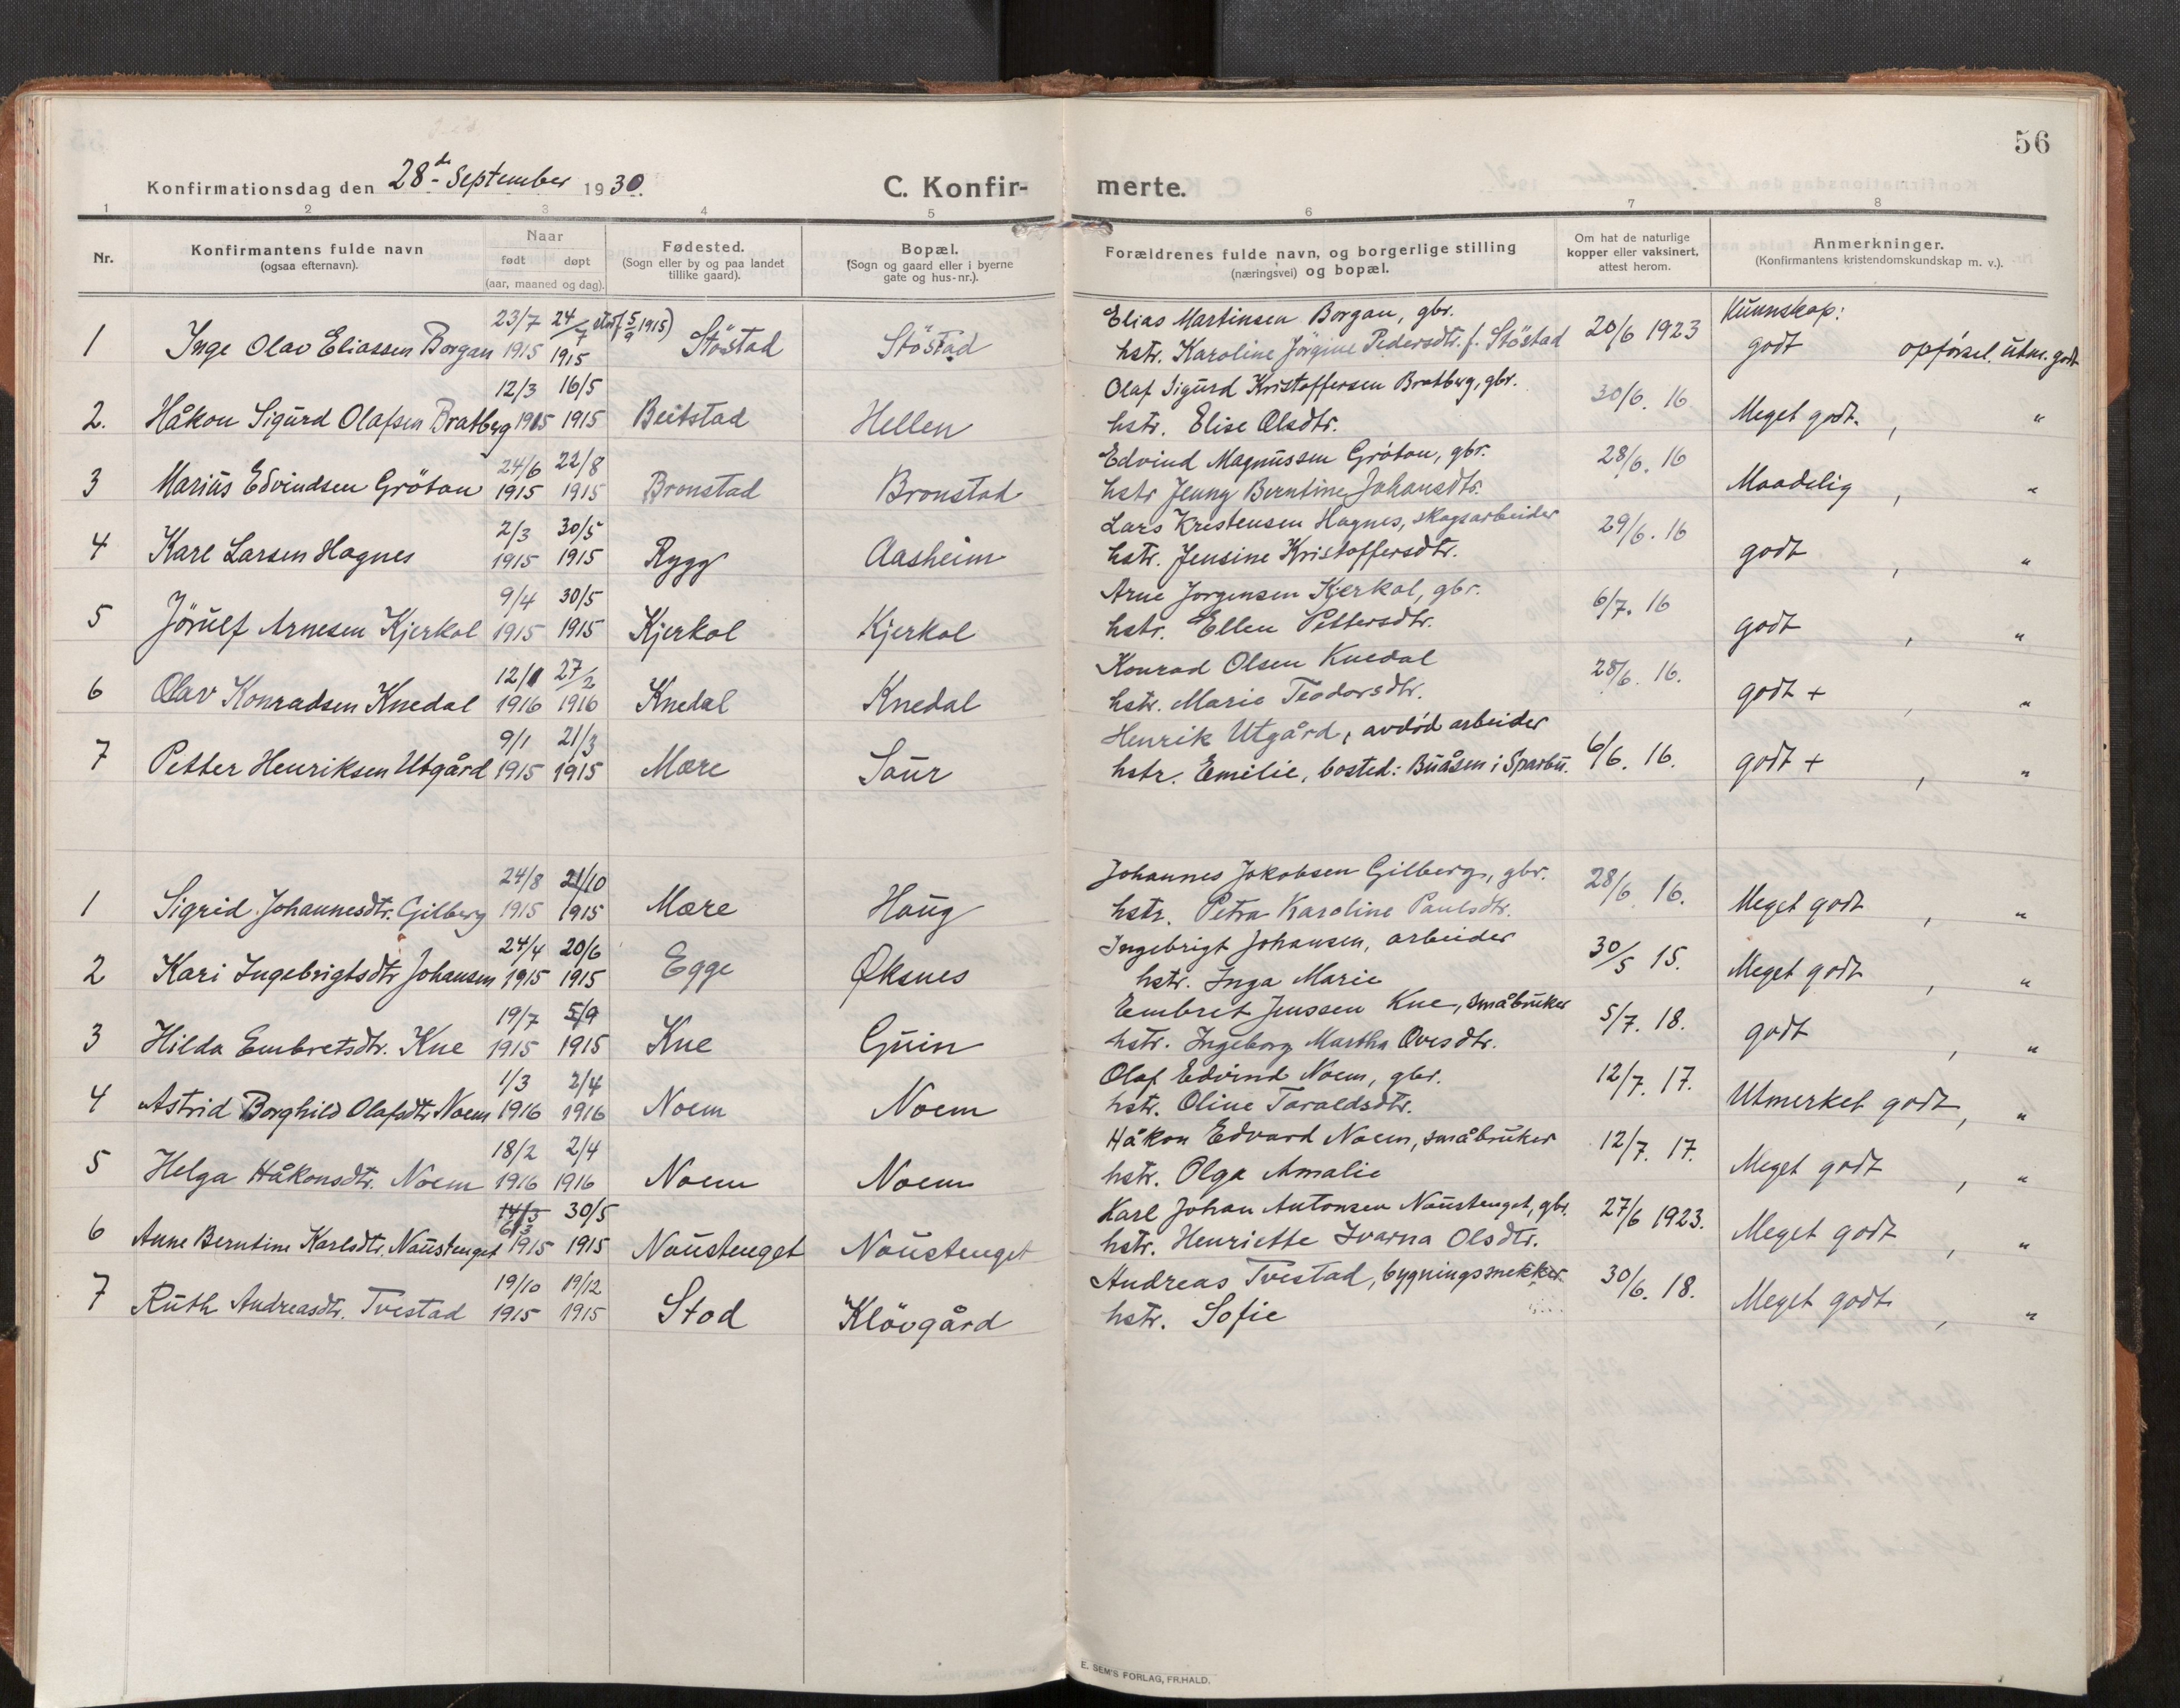 56
Konfirmationsdag den 28de September 1930.
C. Konfir-
merte.
1 2 3 4 5 6 7 8
Nr.
Konfirmantens fulde navn
(ogsaa efternavn).
Naar
født døpt
(aar, maaned og dag).
Fødested.
(Sogn eller by og paa landet
tillike gaard).
Bopæl.
(Sogn og gaard eller i byerne
gate og hus-nr.).
Forældrenes fulde navn, og borgerlige stilling
(næringsvei) og bopæl.
Om hat de naturlige
kopper eller vaksinert,
attest herom.
Anmerkninger.
(Konfirmantens kristendomskundskap m. v.).
23/7 24/7 stad. (5/9 1915) Elias Martinsen Borgan, gbr. Kunnskap:
1 Inge Olav Eliassen Borgan 1915 1915 Støstad Støstad hstr. Karoline Jörgine Pedersdtr. f. Støstad 20/6 1923 godt opførsel. utm. godt
12/3 16/5 Olaf Sigurd Kristoffersen Bratberg, gbr. 30/6. 16
2. Håkon Sigurd Olafsen Bratberg 1915 1915 Beitstad Hellen hstr. Elise Olsdtr. Meget godt. , "
24/6 22/8 Edvind Magnussen Gröton, gbr. 28/6. 16
3 Marius Edvindsen Gröton 1915 1915 Bronstad Bronstad hstr Jenny Berntine Johansdtr. Maadelig , "
2/3 30/5 Lars Kristensen Hagnes, skogsarbeider 29/6. 16
4 Kare Larsen Hagnes 1915 1915 Rygg Aasheim hstr. Jensine Kristoffersdtr. godt , "
9/4 30/5 Arne Jorgensen Kjerkol, gbr. 6/7. 16
5 Jørulf Arnesen Kjerkol 1915 1915 Kjerkol Kjerkol hstr. Ellen Pettersdtr. godt , "
12/1 27/2 Konrad Olsen Knedal 28/6. 16.
6 Olav Konradsen Knedal 1916 1916 Knedal Knedal hstr. Marie Teodorsdtr. godt + , "
9/1 21/3 Henrik Utgård, avdød arbeider
7 Petter Henriksen Utgård 1915 1915 Mære Saur hstr. Emelie, bosted: Buåsen i Sparbu. 6/6. 16. godt + , "
24/8 21/10 Johannes Jakobsen Gilberg, gbr. 28/6. 16.
1 Sigrid Johannesdtr. Gilberg 1915 1915 Mære Haug hstr. Petra Karoline Paulsdtr. Meget godt , "
24/4 20/6 Ingebrigt Johansen, arbeider 30/5 15.
2 Kari Ingebrigtsdtr Johansen 1915 1915 Egge Øksnes hstr. Inga Marie Meget godt , "
19/7 5/9 Embret Jenssen Kne, småbruker 5/7. 18.
3 Hilda Embretsdtr. Kne 1915 1915 Kne Guin hstr. Ingeborg Martha Ovesdtr. godt , "
1/3 2/4 Olaf Edvind Noem, gbr. 12/7. 17.
4 Astrid Borghild Olafsdtr Noem 1916 1916 Noem Noem hstr. Oline Taraldsdtr. Utmerket godt , "
18/2 2/4 Håkon Edvard Noem, småbruker 12/7. 17.
5 Helga Håkonsdtr. Noem 1916 1916 Noem Noem hstr. Olga Amalie Meget godt , "
14/3 6/3 30/5 Karl Johan Antonsen Naustenget, gbr. 27/6 1923.
6 Anne Berntine Karlsdtr. Naustenget 1915 1915 Naustenget Naustenget hstr. Henriette Ivarna Olsdtr. Meget godt , "
19/10 19/12 Andreas Tvestad, bygningssnekker 30/6. 18.
7 Ruth Andreasdtr. Tvestad 1915 1915 Stod Klövgård hstr. Sofie Meget godt , "
E. SEM'S FORLAG, FR.HALD.